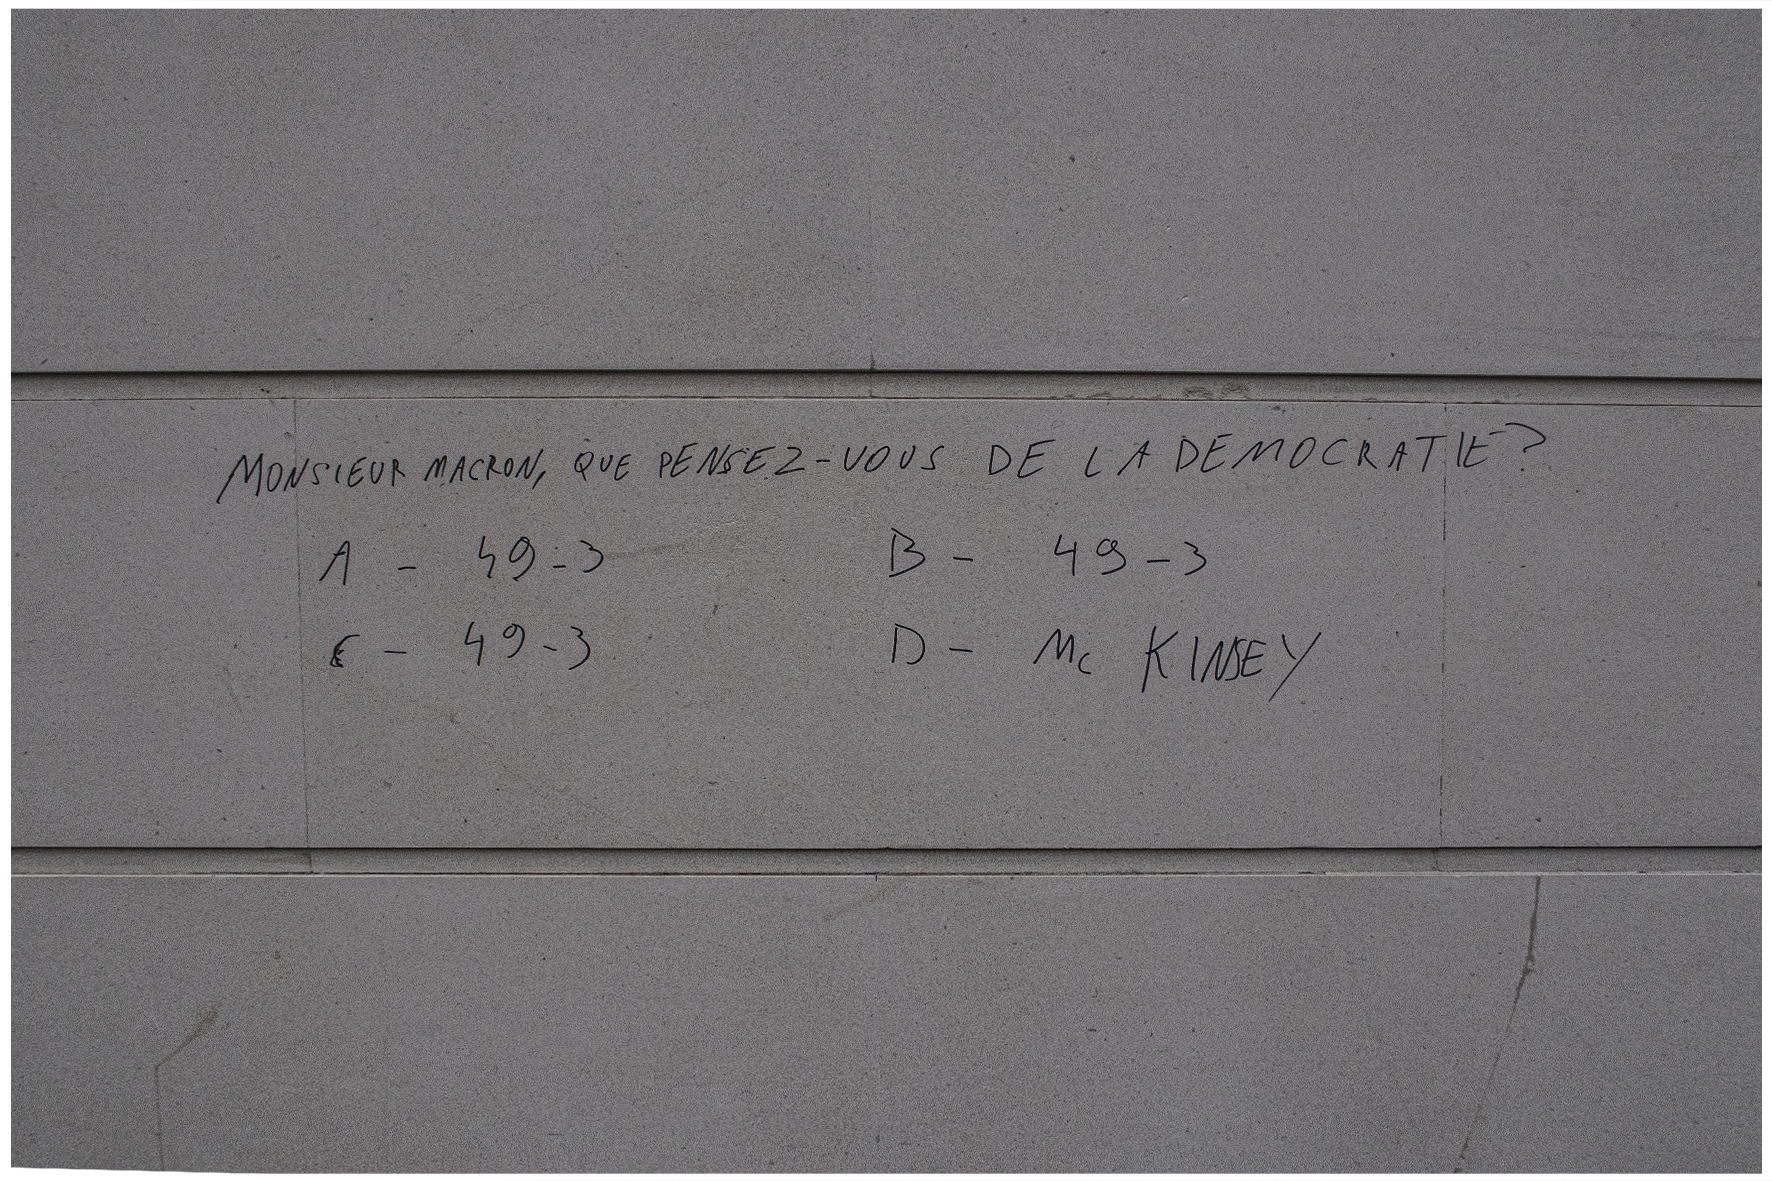 MONSIEUR MACRON, QUE PENSEZ-VOUS DE LA DEMOCRATIE?
A - 49-3 B - 49-3
C - 49-3 D - Mc KINSEY